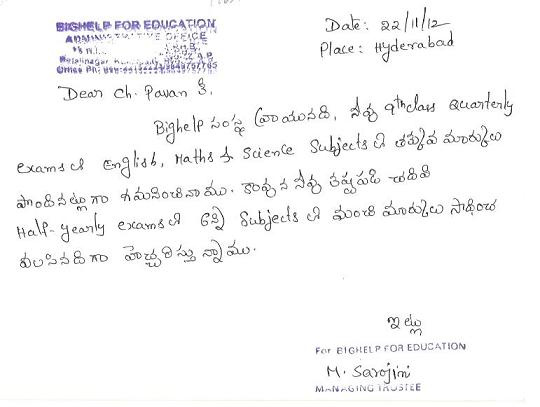 BIGHELP FOR EDUCATION
ADMINISTRATIVE OFFICE
Date: 22/11/12
Place: Hyderabad
Dear Ch. Pavan కి.
Bighelp సంస్థ వ్రాయునది, నీవు 9th class Quarterly
exams లో English, Maths & Science Subjects లో తక్కువ మార్కులు
పొందినట్లుగా గమనించినాము. కావున నీవు కష్టపడి చదివి
Half-yearly exams లో అన్ని Subjects లో మంచి మార్కులు సాధించ
వలసినదిగా హెచ్చరిస్తున్నాము.
ఇట్లు
For BIGHELP FOR EDUCATION
M. Sarojini
MANAGING TRUSTEE